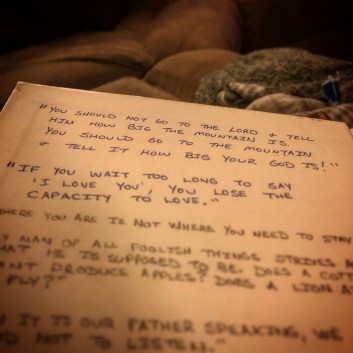 "YOU SHOULD NOT GO TO THE LORD & TELL
HIM HOW BIG THE MOUNTAIN IS.
YOU SHOULD GO TO THE MOUNTAIN
& TELL IT HOW BIG YOUR GOD IS!"
"IF YOU WAIT TOO LONG TO SAY
'I LOVE YOU', YOU LOSE THE
CAPACITY TO LOVE."
HERE YOU ARE IS NOT WHERE YOU NEED TO STAY
MAN OF ALL FOOLISH THINGS STRIDES
HE IS SUPPOSED TO BE. DOES A COTT
PRODUCE APPLES? DOES A LION
FLY?"
IT IS OUR FATHER SPEAKING, WE
NOT TO LISTEN."